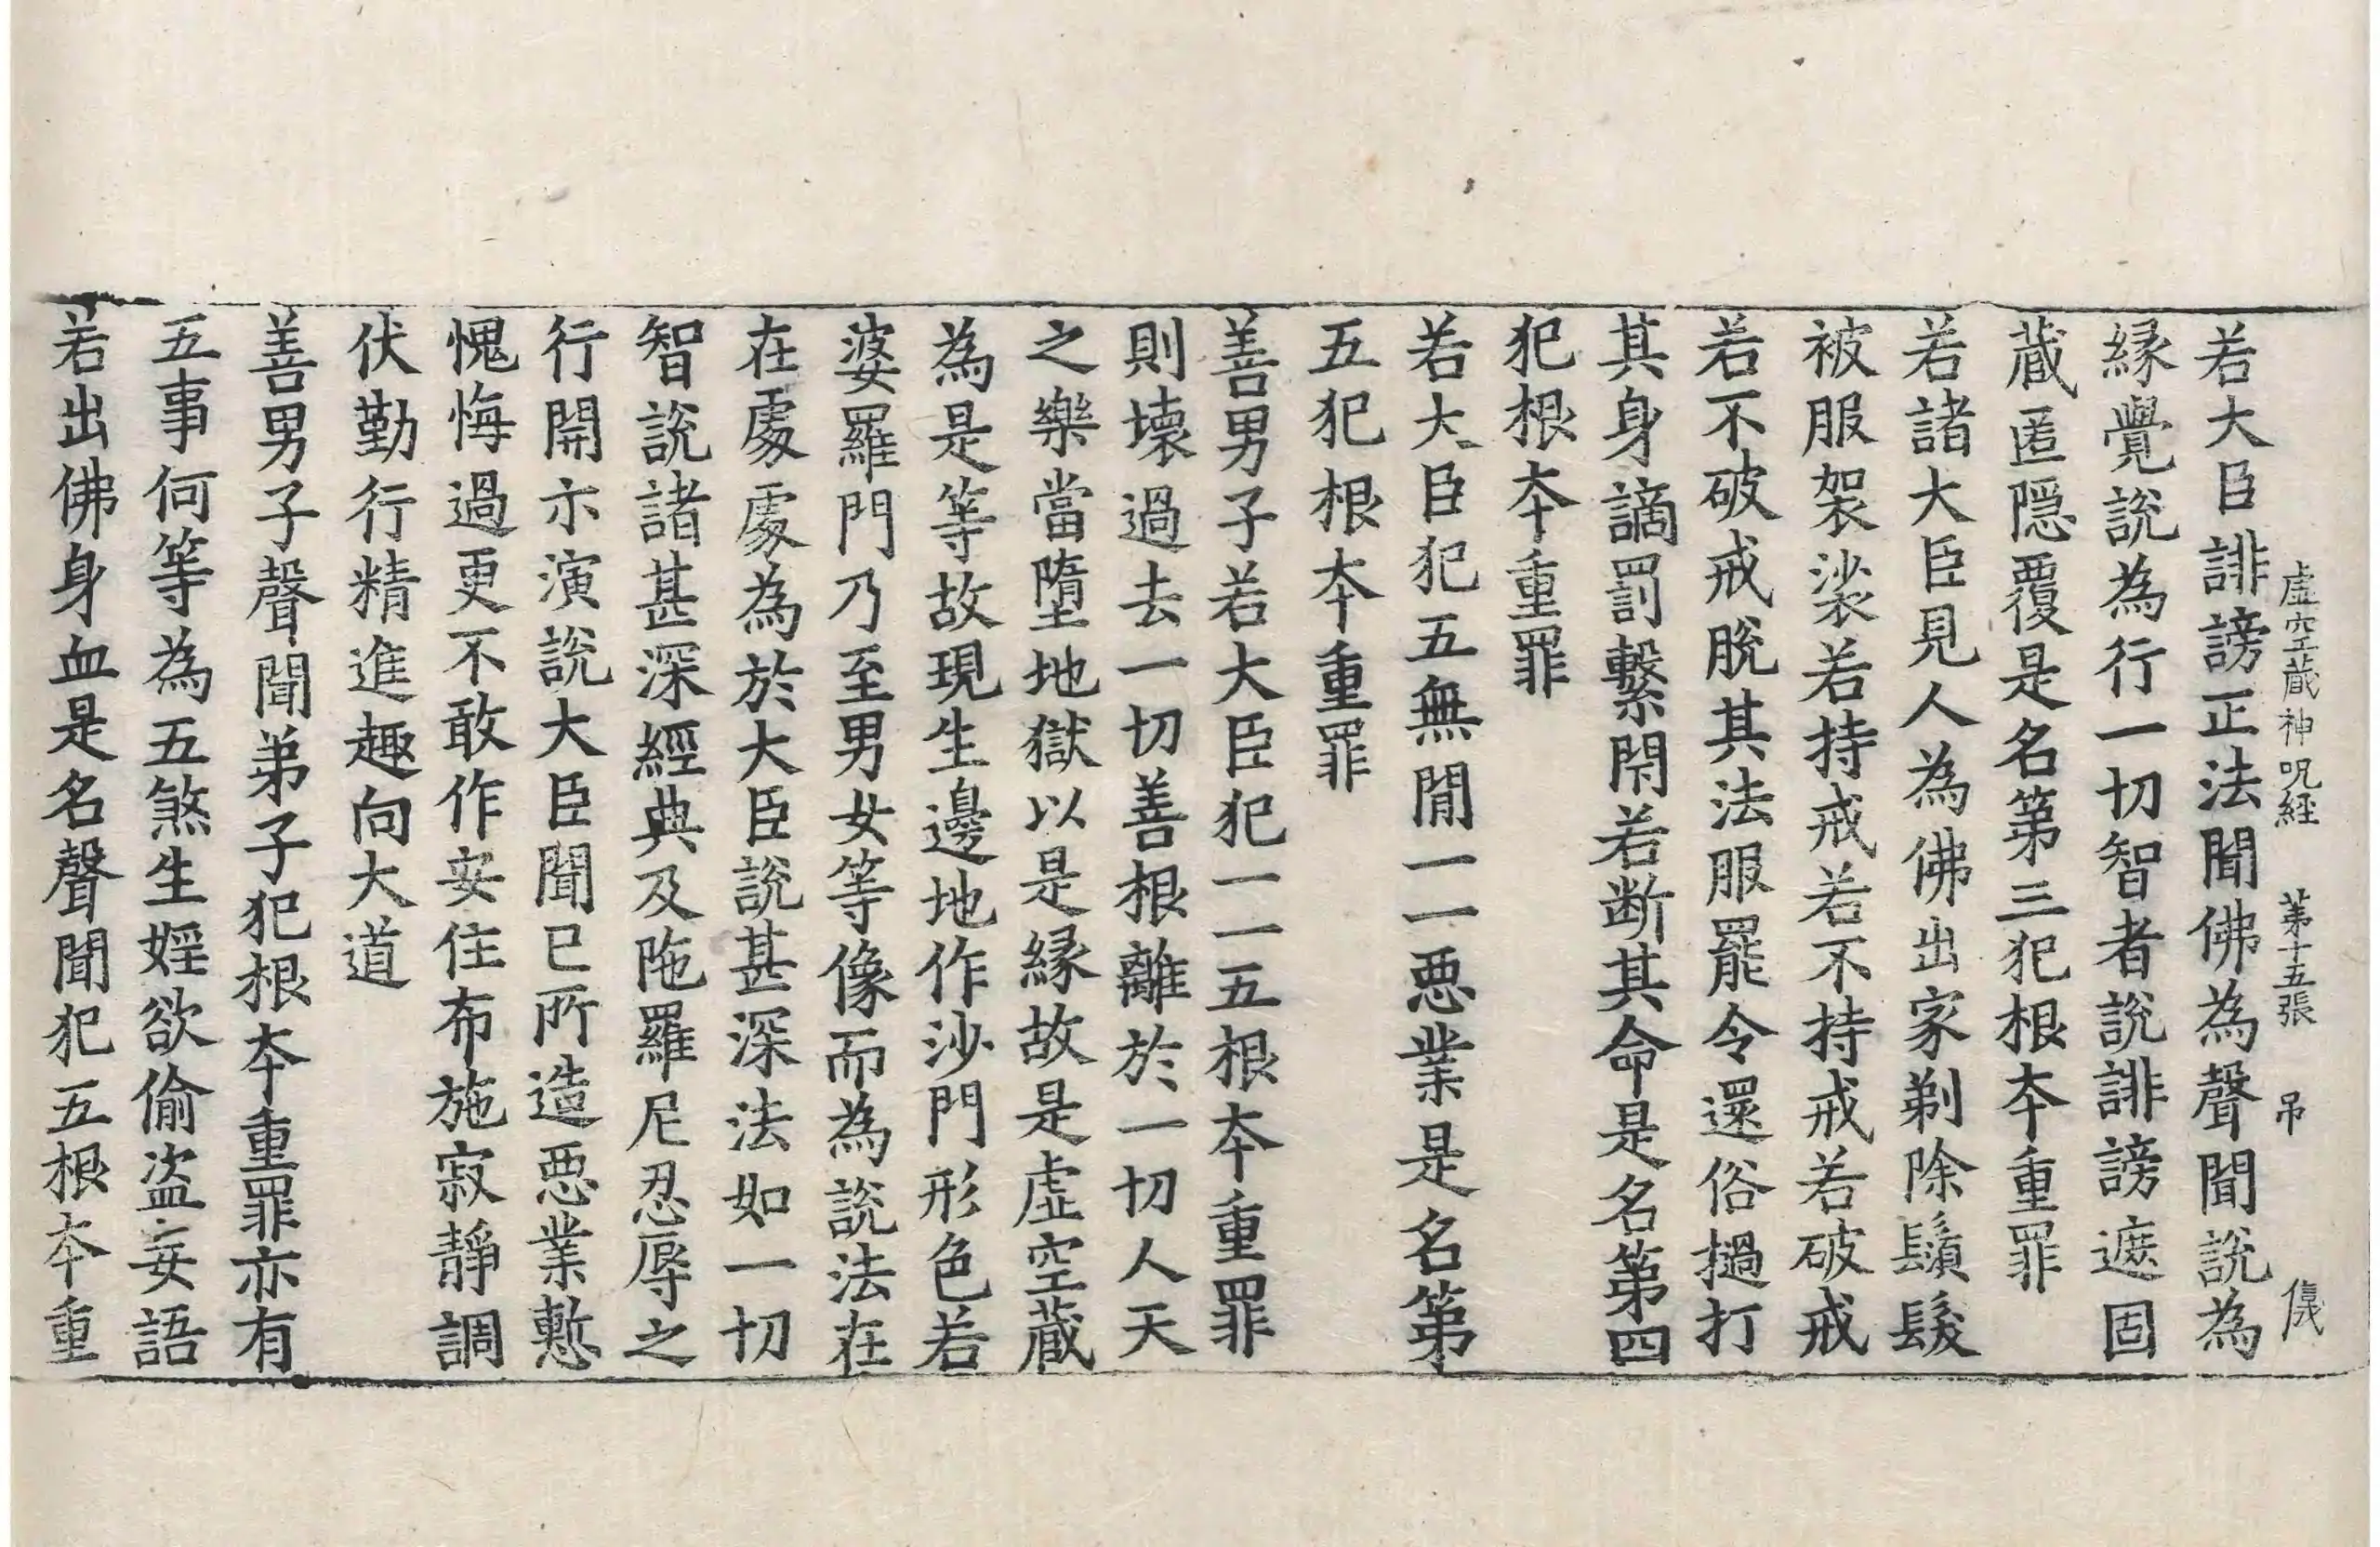 虛空蔵神呪経 苐十五張 吊 㒞
若大臣誹謗正法聞佛為聲聞說為
緣覺說為行一切智者說誹謗遮固
蔵匿隱覆是名第三犯根夲重罪
若諸大臣見人為佛出家剃除鬚髮
被服袈裟若持戒若不持戒若破戒
若不破戒脫其法服罷令還俗撾打
其身謫罰繫閇若断其命是名第四
犯根夲重罪
若大臣犯五無閒一一惡業是名第
五犯根夲重罪
善男子若大臣犯一一五根夲重罪
則壞過去一切善根離於一切人天
之樂當墮地獄以是緣故是虛空蔵
為是等故現生邊地作沙門形色若
婆羅門乃至男女等像而為說法在
在處處為於大臣說甚深法如一切
智說諸甚深經典及陁羅尼忍辱之
行開示演說大臣聞已所造惡業慙
愧悔過更不敢作安住布施寂靜調
伏勤行精進趣向大道
善男子聲聞弟子犯根夲重罪亦有
五事何等為五煞生婬欲偷盗妄語
若出佛身血是名聲聞犯五根夲重